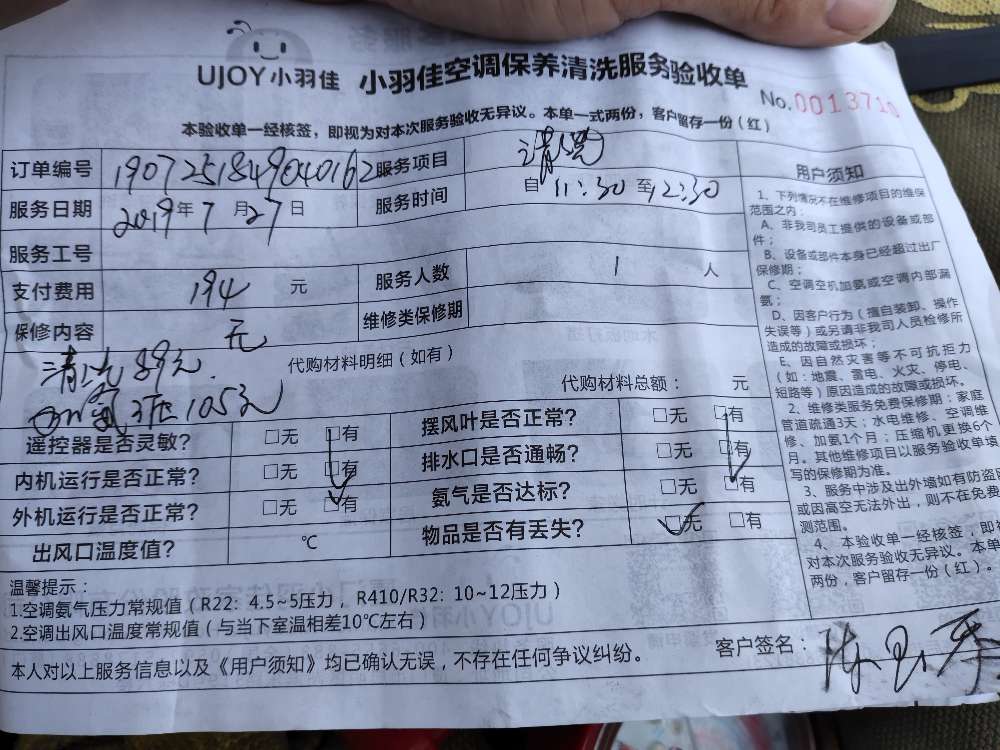 UJOY小羽佳 小羽佳空调保养清洗服务验收单
No.0013710
本验收单一经核签，即视为对本次服务验收无异议。本单一式两份，客户留存一份（红）
订单编号 1907251849040162 服务项目 清洗
服务日期 2019年7月27日 服务时间 自11:30至12:30
服务工号
支付费用 194 元 服务人数 1 人
保修内容 无 维修类保修期
代购材料明细（如有）
清洗89元.
加氨3压105元
代购材料总额： 元
遥控器是否灵敏？ □无 □有 摆风叶是否正常？ □无 □有
内机运行是否正常？ □无 □有 排水口是否通畅？ □无 □有
外机运行是否正常？ □无 □有 氨气是否达标？ □无 □有
出风口温度值？ ℃ 物品是否有丢失？ □无 □有
温馨提示：
1.空调氨气压力常规值（R22：4.5~5压力，R410/R32：10~12压力）
2.空调出风口温度常规值（与当下室温相差10℃左右）
本人对以上服务信息以及《用户须知》均已确认无误，不存在任何争议纠纷。
客户签名：
用户须知
1、下列情况不在维修项目的维保
范围之内：
A、非我司员工提供的设备或部
件；
B、设备或部件本身已经超过出厂
保修期；
C、空调空机加氨或空调内部漏
氨；
D、因客户行为（擅自装卸、操作
失误等）或另请非我司人员检修所
造成的故障或损坏；
E、因自然灾害等不可抗拒力
（如：地震、雷电、火灾、停电、
短路等）原因造成的故障或损坏。
2、维修类服务免费保修期：家庭
管道疏通3天；水电维修、空调维
修、加氨1个月；压缩机更换6个
月。其他维修项目以服务验收单填
写的保修期为准。
3、服务中涉及出外墙如有防盗
或因高空无法外出，则不在免费
测范围。
4、本验收单一经核签，即
对本次服务验收无异议。本单
两份，客户留存一份（红）。